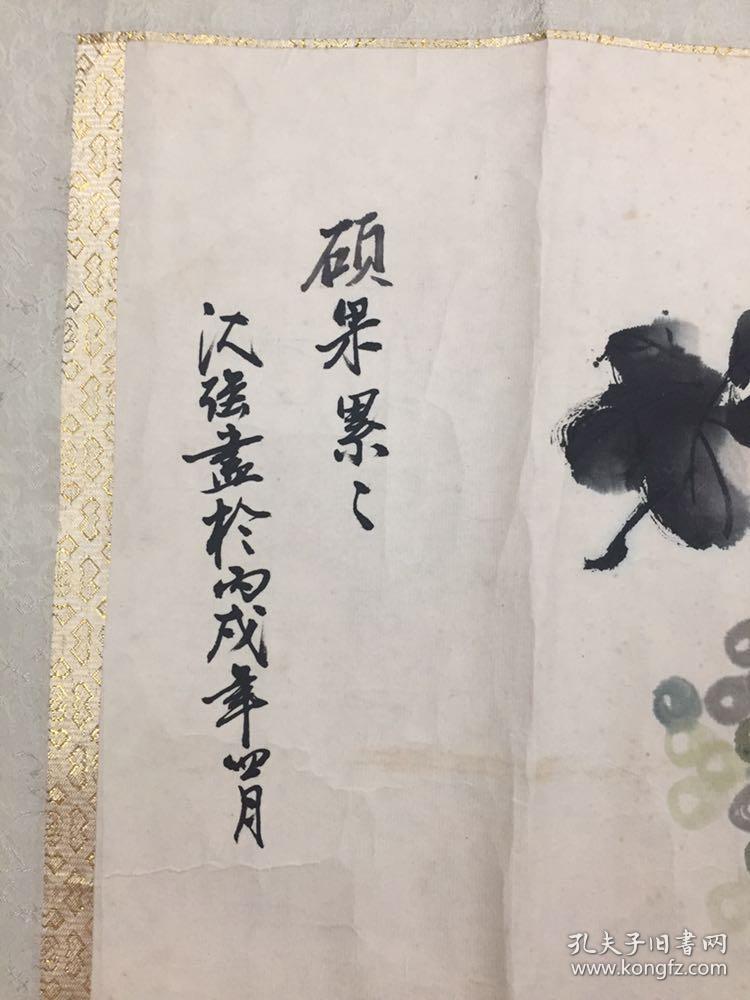 硕果累〻
沈强畫於丙戌年四月
孔夫子旧書网
www.kongfz.com